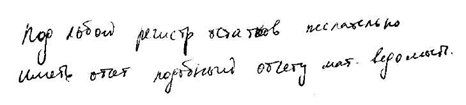 Под любой регистр остатков желательно
иметь отчет подобный отчету мат. ведомость.